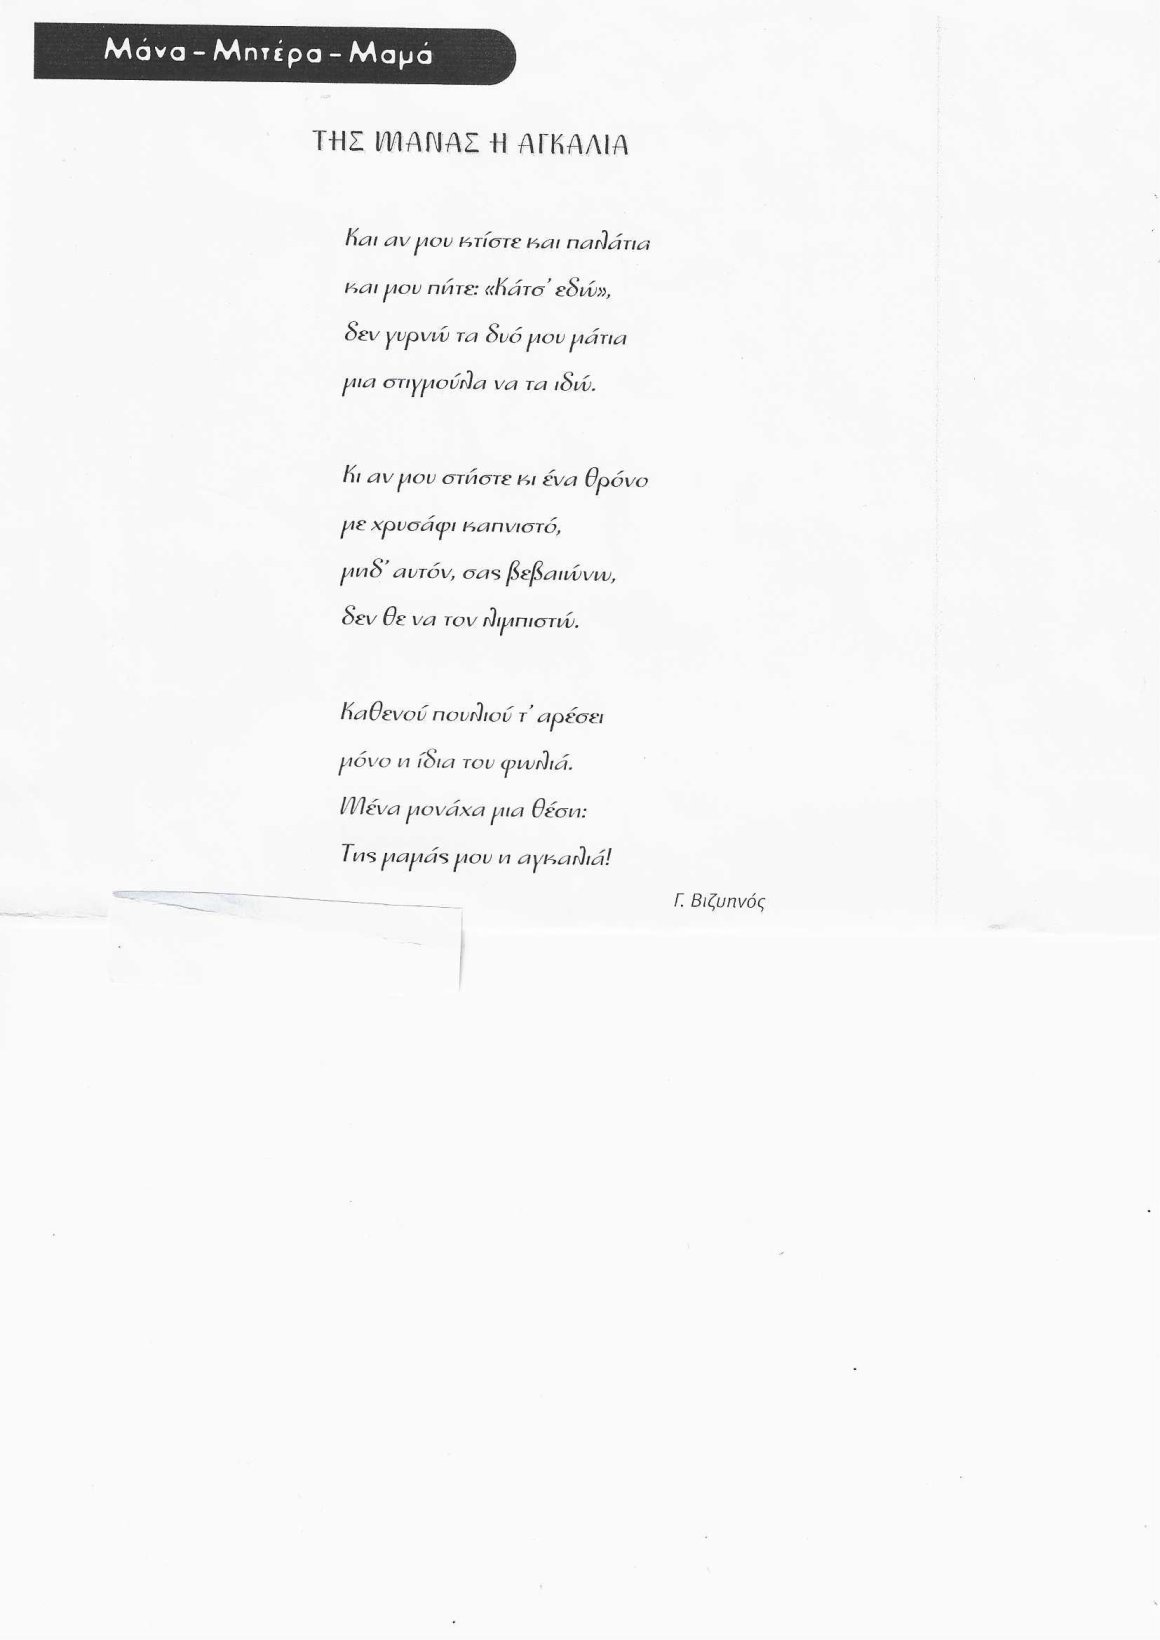 Μάνα - Μητέρα - Μαμά
ΤΗΣ ΜΑΝΑΣ Η ΑΓΚΑΛΙΑ
Και αν μου κτίστε και παλάτια
και μου πήτε: «Κάτσ’ εδώ»,
δεν γυρνώ τα δυό μου μάτια
μια στιγμούλα να τα ιδώ.
Κι αν μου στήστε κι ένα θρόνο
με χρυσάφι καπνιστό,
μηδ’ αυτόν, σας βεβαιώνω,
δεν θε να τον λιμπιστώ.
Καθενού πουλιού τ’ αρέσει
μόνο η ίδια του φωλιά.
Μένα μονάχα μια θέση:
Της μαμάς μου η αγκαλιά!
Γ. Βιζυηνός